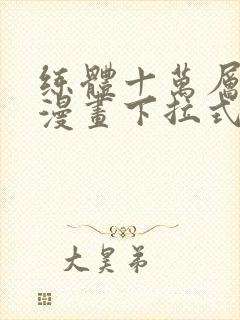 练體十萬層
漫畫下拉式
大昊弟